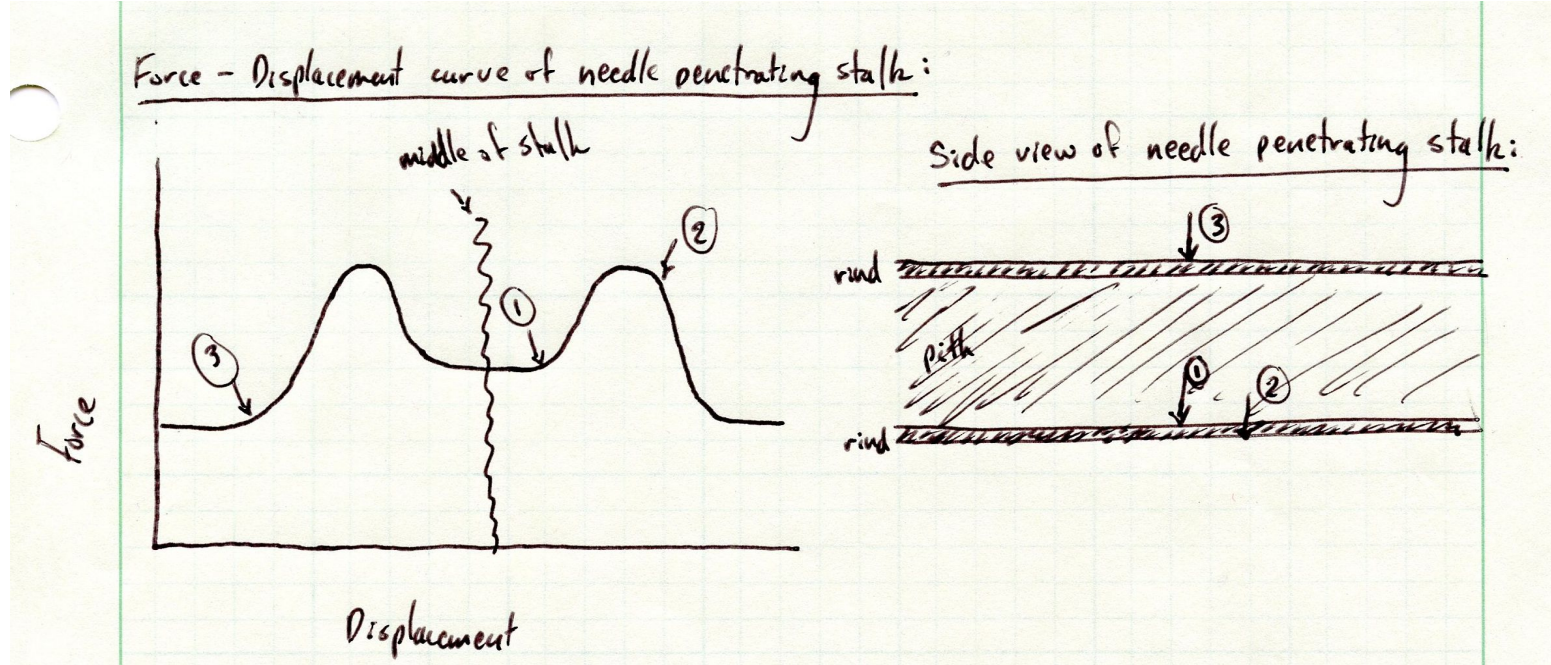 Force - Displacement curve of needle penetrating stalk:
middle of stalk
2
1
3
Force
Displacement
Side view of needle penetrating stalk:
3
rind
pith
1
2
rind